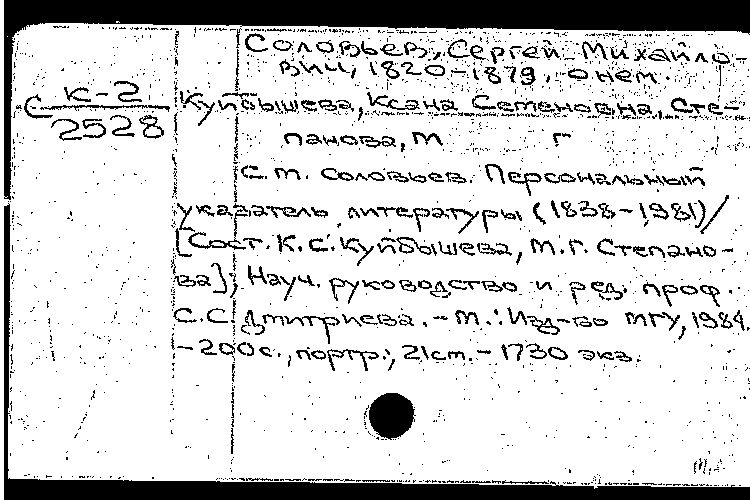 Соловьев, Сергей Михайло-
вич, 1820-1879, о нем.
С к-2
2528
Куйбышева, Ксана Семеновна, Сте-
панова, М Г
С.М. Соловьев. Персональный
указатель литературы (1838-1981)/
[Сост. К.С. Куйбышева, М.Г. Степано-
ва]; Науч. руководство и ред. проф.
С.С. Дмитриева. - М.: Изд-во МГУ, 1984.
- 200 с., портр.; 21 см. - 1730 экз.